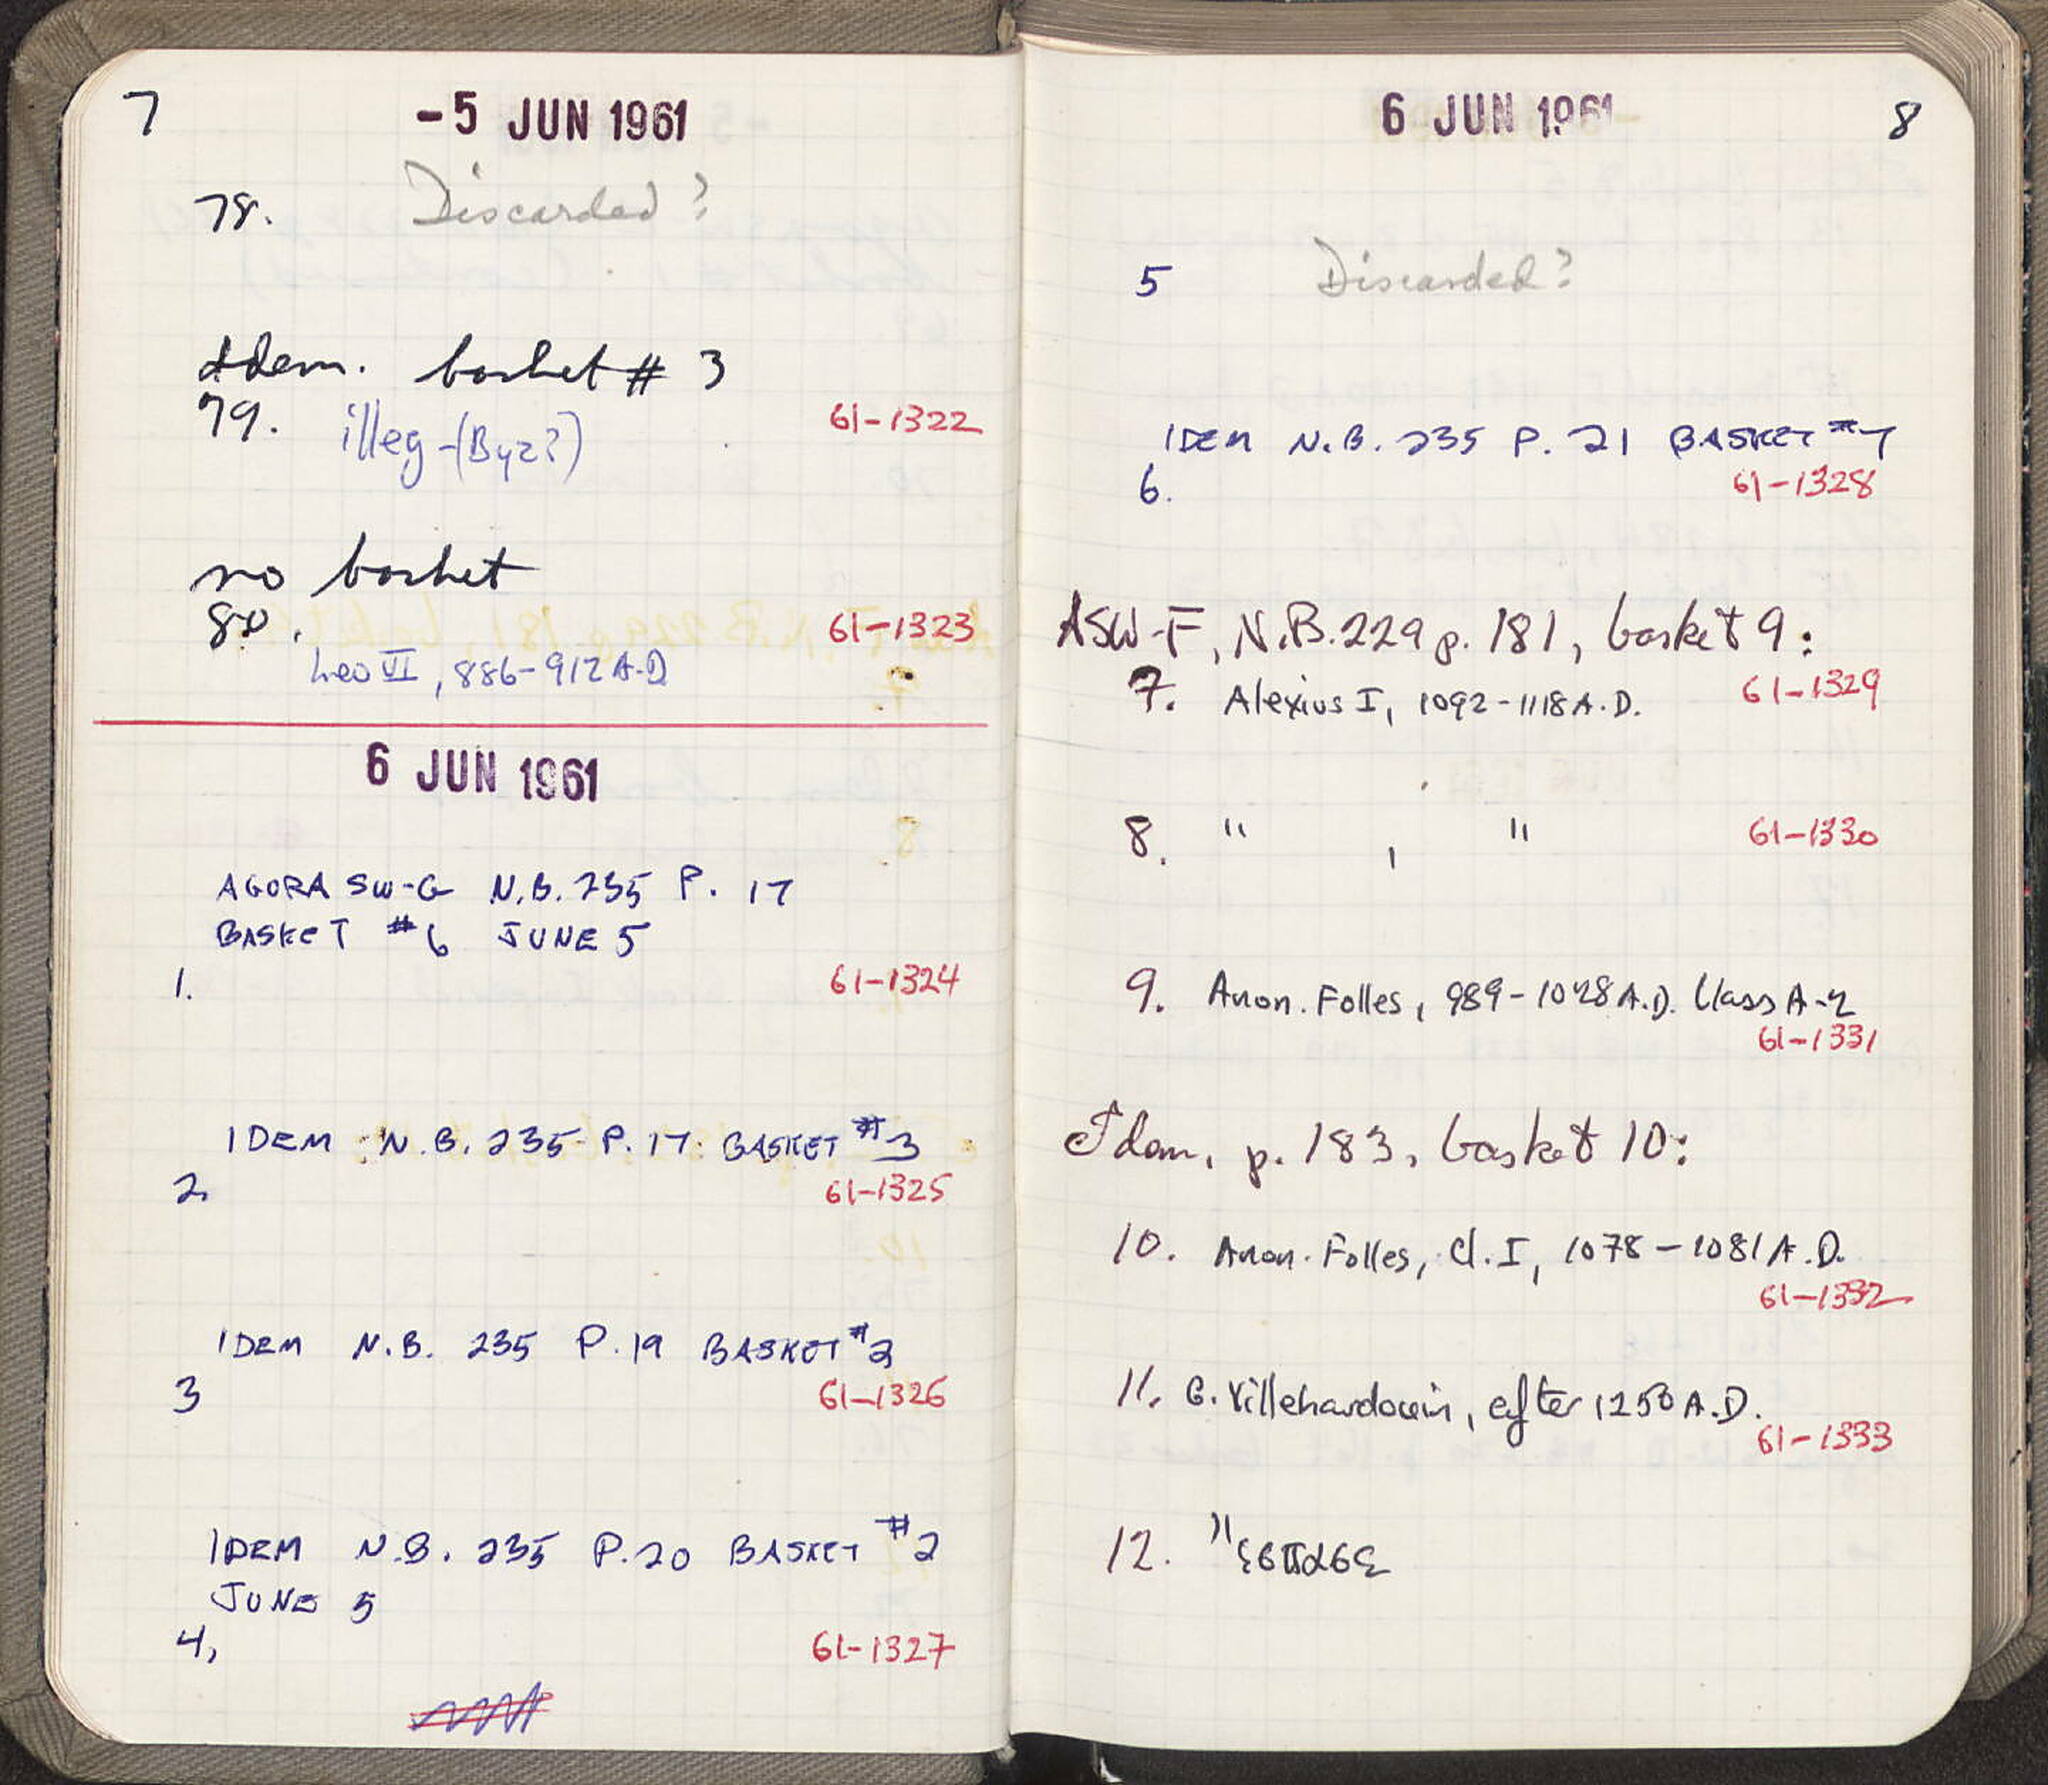 7
-5 JUN 1961
78. Discarded?
Idem. basket # 3
79. illeg-(Byz?) 61-1322
no basket
80. 61-1323
Leo VI, 886-912 A.D
6 JUN 1961
AGORA SW-G N.B. 235 P. 17
BASKET #6 JUNE 5
1. 61-1324
IDEM N.B. 235 P. 17 BASKET #3
2. 61-1325
IDEM N.B. 235 P. 19 BASKET #2
3 61-1326
IDEM N.B. 235 P. 20 BASKET #2
JUNE 5
4, 61-1327
6 JUN 1961
8
5 Discarded?
IDEM N.B. 235 P. 21 BASKET #7
6. 61-1328
ASW-F, N.B. 229 p. 181, basket 9:
7. Alexius I, 1092-1118 A.D. 61-1329
8. " , " 61-1330
9. Anon. Folles, 989-1028 A.D. Class A-2
61-1331
Idem, p. 183, basket 10:
10. Anon. Folles, Cl. I, 1078-1081 A.D.
61-1332
11. G. Villehardouin, after 1250 A.D.
61-1333
12.